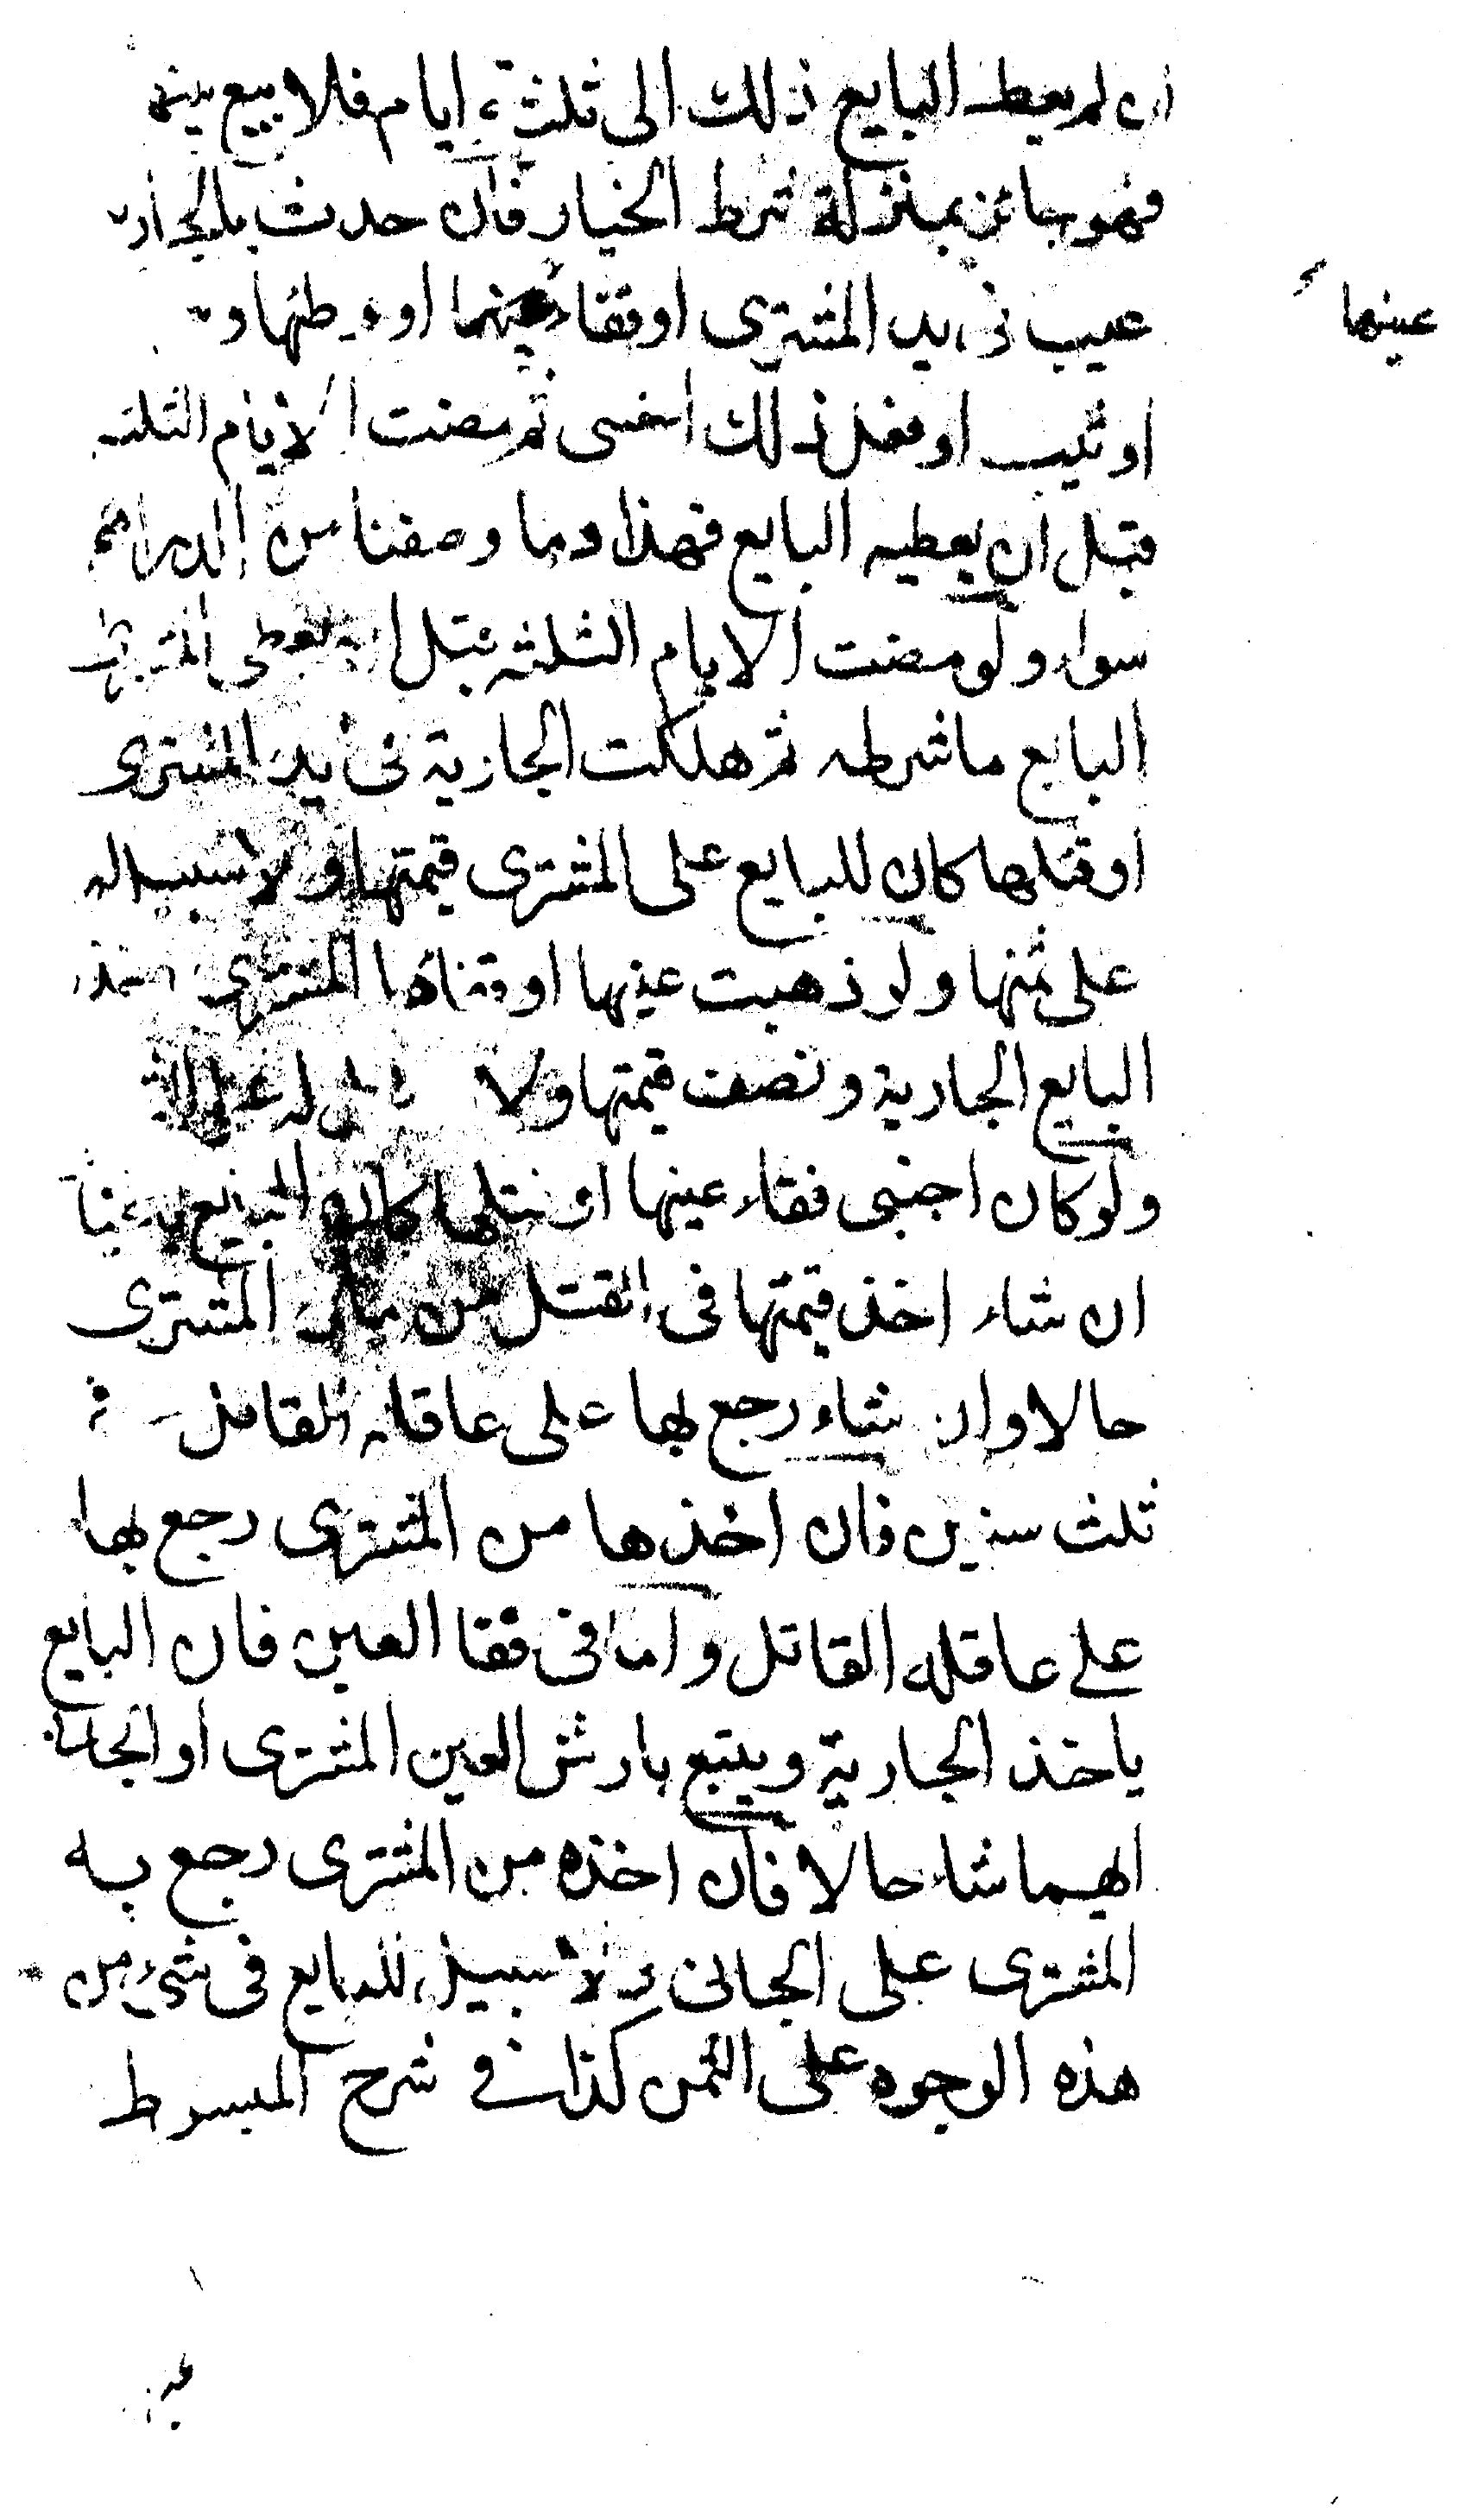 ان لم يعط البايع ذلك الى ثلثة ايام فلا بيع بينهما
فهو جائز بمنزلة شرط الخيار فان حدث بالجارية
عيب فى يد المشترى او فقاء عينها او وطئها و
عينها
او ثيب او فعل ذلك اجنبى ثم مضت الايام الثلثة
قبل ان يعطيه البايع فهذا وما وصفنا من الدراهم
سواء ولو مضت الايام الثلثه قبل ان يعطى المشترى
البايع ما شرطه ثم هلكت الجارية فى يد المشترى
او قتلها كان للبايع على المشترى قيمتها ولا سبيل له
على ثمنها ولو ذهبت عينها او فقاها المشترى اخذ
البايع الجارية ونصف قيمتها ولا له على
ولو كان اجنبى فقاء عينها او قتلها كان البايع
ان شاء اخذ قيمتها فى القتل من مال المشترى
حالا وان شاء رجع بها على عاقلة القاتل
ثلث سنين فان اخذها من المشترى رجع بها
على عاقله القاتل واما فى فقا العين فان البايع
ياخذ الجارية ويتبع بارش العين المشترى او الجانى
ايهما شاء حالا فان اخذه من المشترى رجع به
المشترى على الجانى ولا سبيل للبايع فى شئ من
هذه الوجوه على الثمن كذا فى شرح المبسوط